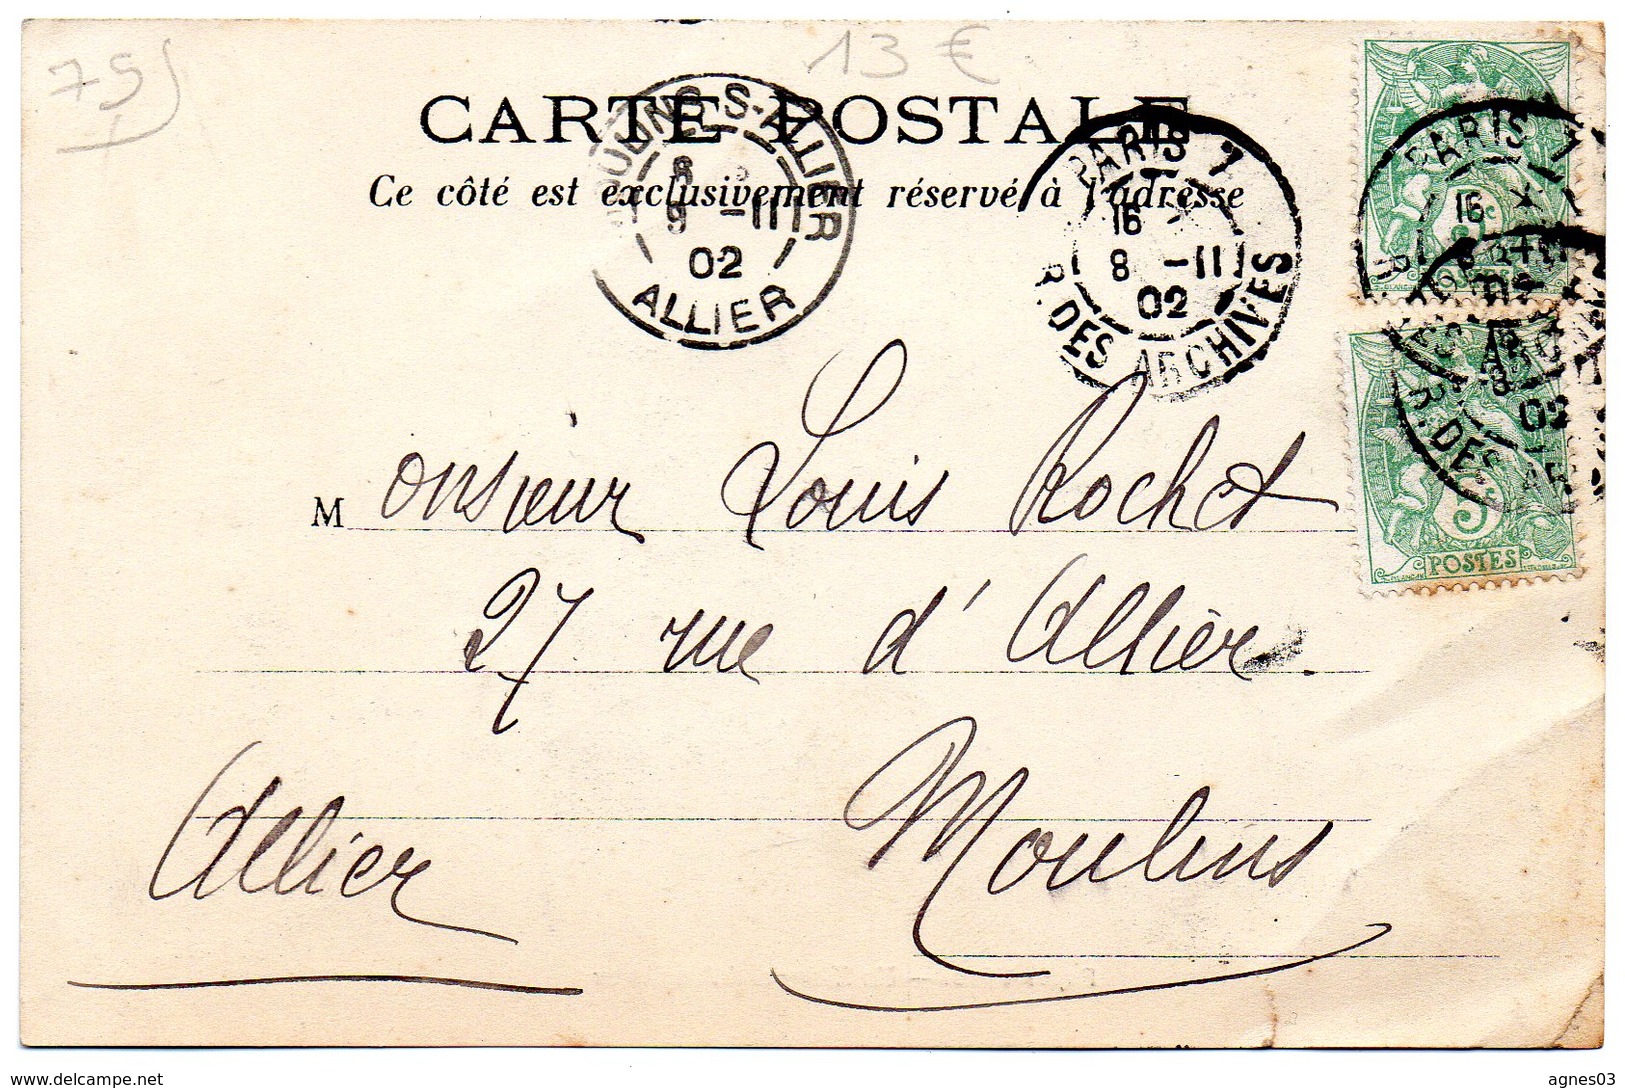 75
13 €
CARTE POSTALE
Ce côté est exclusivement réservé à l'adresse
MOULINS-S-ALLIER
8
9 -11
02
ALLIER
PARIS 7
16 *
8 -11
02
R. DES ARCHIVES
PARIS 7
16 *
5c
POSTES
02
R. DES AR
5
POSTES
Monsieur Louis Rochet
27 rue d'Allier
Moulins
Allier
www.delcampe.net
agnes03